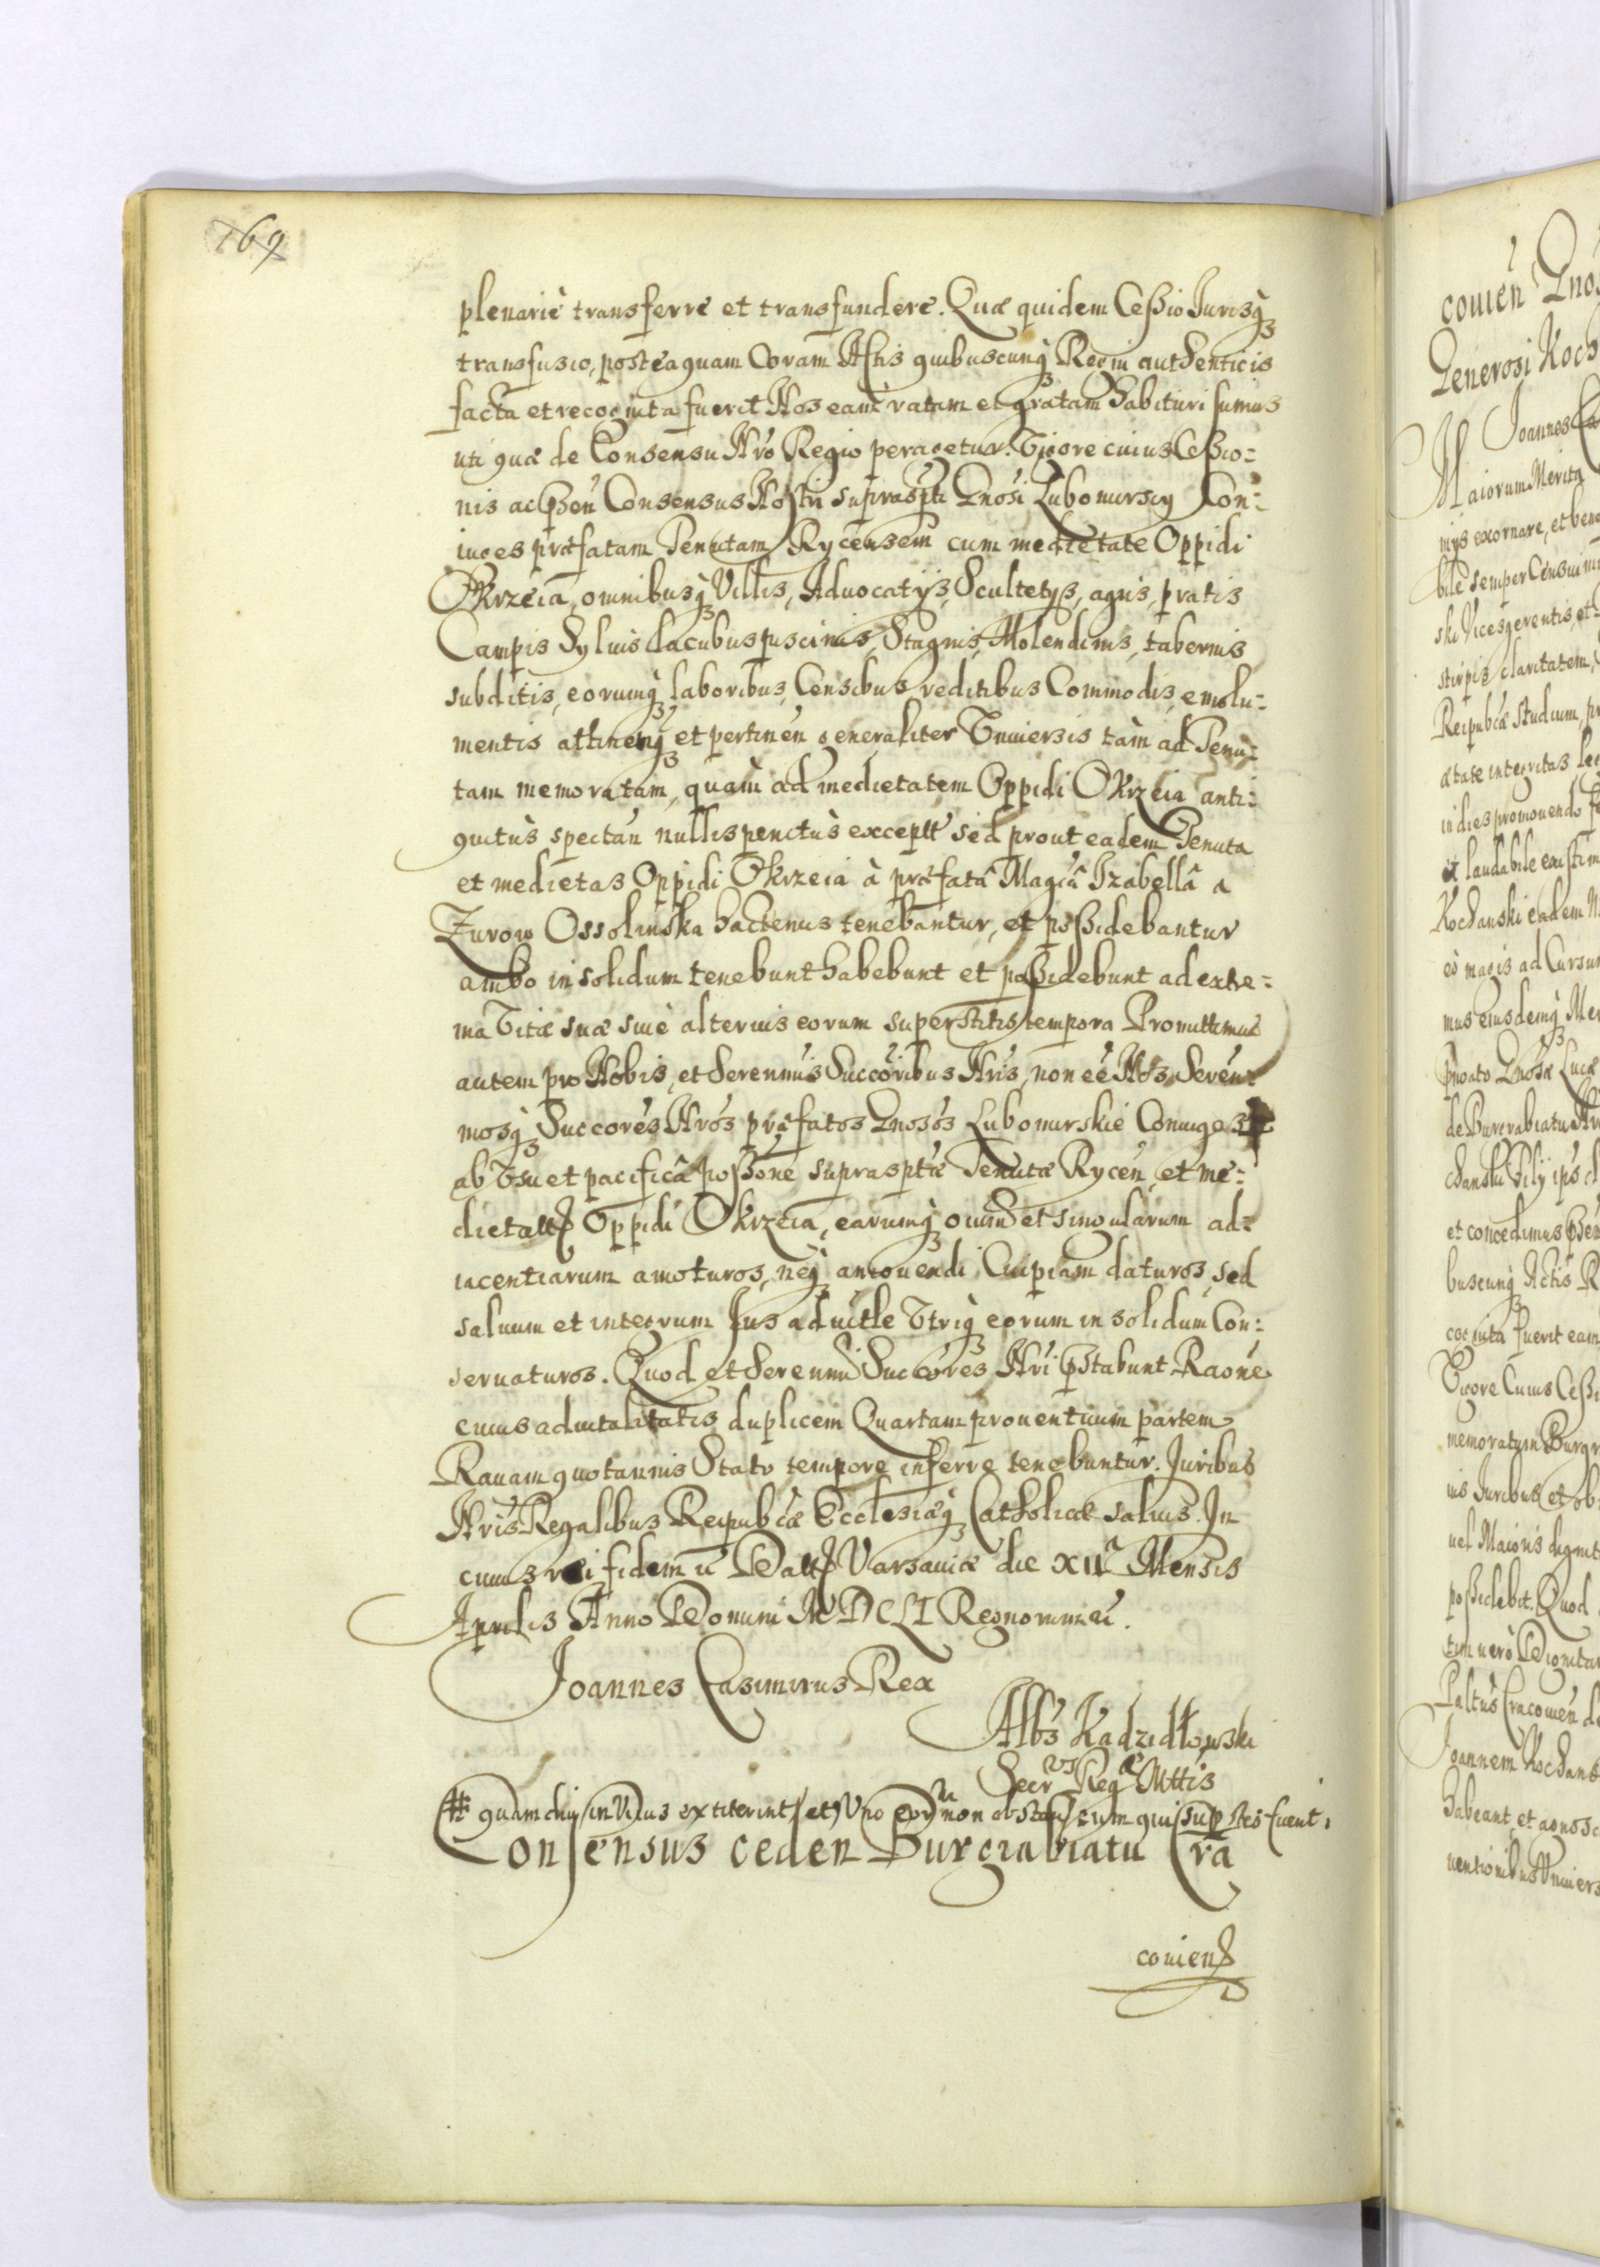 169
plenariè transferre et transfundere. Quæ quidem Cessio Jurisq3
transfusio, posteaquam Coram Actis quibuscunq3 Regni authenticis
facta et recognita fuerit Nos eam ratam et gratam habituri sumus
uti quæ de Consensu Nrõ Regio peragetur. Vigore cuius Cessio=
nis ac pñsen Consensus Nostri suprascpti Gnosi Lubomirscy Con=
iuges præfatam Tenutam Rycensem cum medietate Oppidi
Okrzeia, omnibusq3 Villis, Aduocatijs, Scultetijs, agris, pratis
Campis Syluis lacubus piscinis, Stagnis, Molendinis, tabernis
subditis, eorumq3 laboribus, Censibus reditibus Commodis, emolu=
mentis attinenq3 et pertinen generaliter Vniuersis tàm ad Tenu=
tam memoratam, quàm ad medietatem Oppidi Okrzeia anti=
quitùs spectan nullis penitùs except sed prout eadem Tenuta
et medietas Oppidi Okrzeia à præfatâ Magcâ Izabellâ a
Zurow Ossolinska hactenus tenebantur, et possidebantur
ambo in solidum tenebunt habebunt et possidebunt ad extre=
ma Vitæ suæ siuè alterius eorum superstitis tempora Promittimus
autem pro Nobis, et Serenmis Succoribus Nris, non eē Nos Seren=
mosq3 Succores Nros præfatos Gnosos Lubomirskie Coniuges #
ab Vsu et pacificâ possone suprascptæ Tenutæ Rycen, et me=
dietatt Oppidi Okrzeia, earumq3 oium et singularum ad=
iacentiarum amoturos, neq3 amouendi Cuipiam daturos, sed
saluum et integrum Jus aduitle Vtriq3 eorum in solidum Con=
seruaturos. Quod et Serenmi Succores Nri pstabunt Raone
cuius aduitalitatis duplicem Quartam prouentuum partem
Rauam quotannis Stato tempore inferre tenebuntur. Juribus
Nris Regalibus Reipubcæ Ecclesiæq3 Catholicæ saluis. In
cuius rei fidem Datt Varsauiæ die XII Mensis
Aprilis Anno Domini MDCLI Regnorum
Joannes Casimirus Rex
Albs Kadzidłowski
Secr Reg Mttis
# quamdiu in Viuis extiterint et Vno eor non obstan cum qui supstes fuerit
Consensus ceden Burgrabiatu Cra
couien
couien Gnos
Generosi Koch
Joannes Ca
Maiorum Merita
mijs exornare, et bene
bile semper Censuim
ski Vicesgerentis, et
stirpis claritatem,
Reipubcæ studium, pr
ætate integritas
in dies promouendo
laudabile existim
Kochanski eadem
eò magis ad Cursum
mus eiusdemq3 Mer
Gnosæ Lucæ
de Burgrabiatu
chanski Filij ips
et concedimus pñsen
buscunq3 Actis R
cognita fuerit eam
Vigore Cuius Cessi
memoratum Burgr
nis Juribus et ob
uel Maioris dignit
possidebit. Quod
tim uerò Dignitar
Paltùs Cracouien de
Joannem Kochans
habeant, et agnosc
uentionibus Vniuers